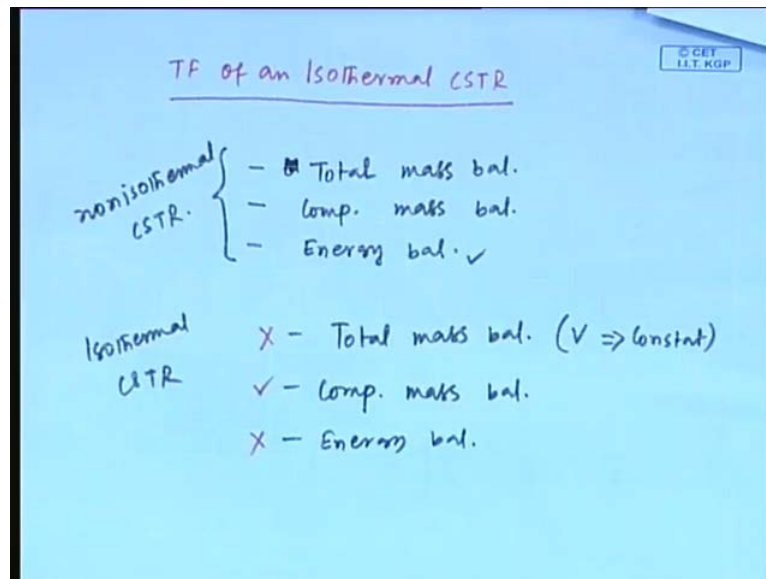 TF of an Isothermal CSTR
© CET
I.I.T. KGP
nonisothermal
CSTR.
- Total mass bal.
- Comp. mass bal.
- Energy bal. ✓
Isothermal
CSTR
X - Total mass bal. (V => Constat)
✓ - Comp. mass bal.
X - Energy bal.